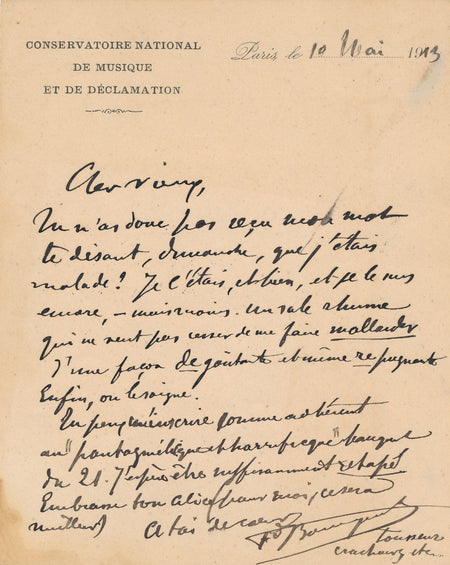 CONSERVATOIRE NATIONAL
DE MUSIQUE
ET DE DÉCLAMATION
Paris le 10 Mai 1913
Cher vieux,
Tu n'as donc pas reçu mon mot
te disant, dimanche, que j'étais
malade? Je l'étais, et bien, et je le suis
encore, – mais moins. Un sale rhume
qui ne veut pas cesser de me faire mollarder
d'une façon dégoûtante et même repugnante
Enfin, on le soigne.
Tu peux m'inscrire comme adhérent
au "pantagruélique et" banquet
du 21. J'espère être suffisamment retapé
Embrasse ton Alice pour moi, ce sera
meilleur)
A toi de cœur
tousseur
cracheur, etc..